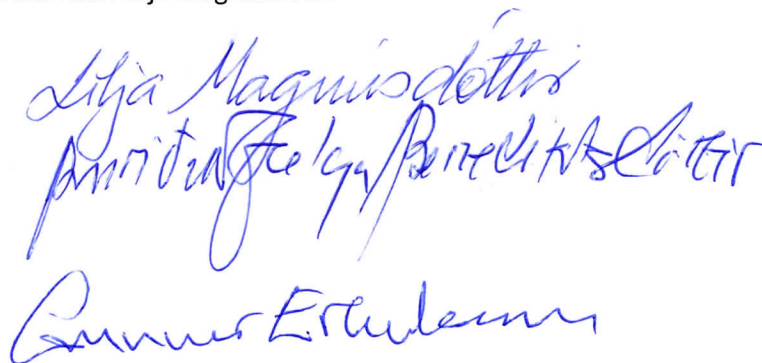 Lilja Magnúsdóttir
Þuríður Helga Benediktsdóttir
Gunnar Erlendsson